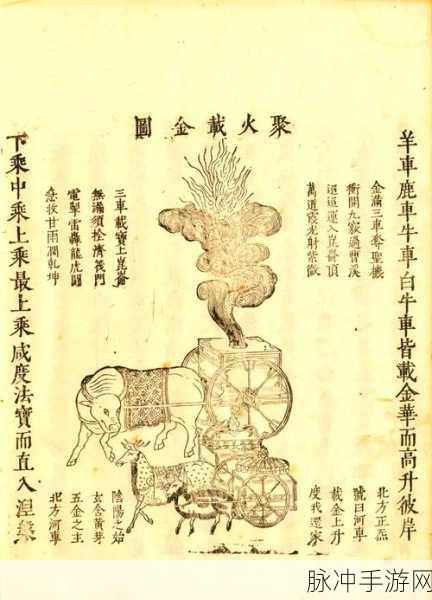 聚火載金圖
羊車鹿車牛車白牛車皆載金華而高升彼岸
金滿三車奪聖機
衝開九竅過曹溪
迢迢運入崑崙頂
萬道霞光射紫微
三車載寶上崑崙
無漏須拴濟筏門
電掣雷轟龍虎鬭
甘雨潤乾坤
北方正炁
號曰河車
載金上升
度我還家
陰陽之始
玄含黃芽
五金之主
北方河車
下乘中乘上乘最上乘咸度法寶而直入涅槃
脉冲手游网